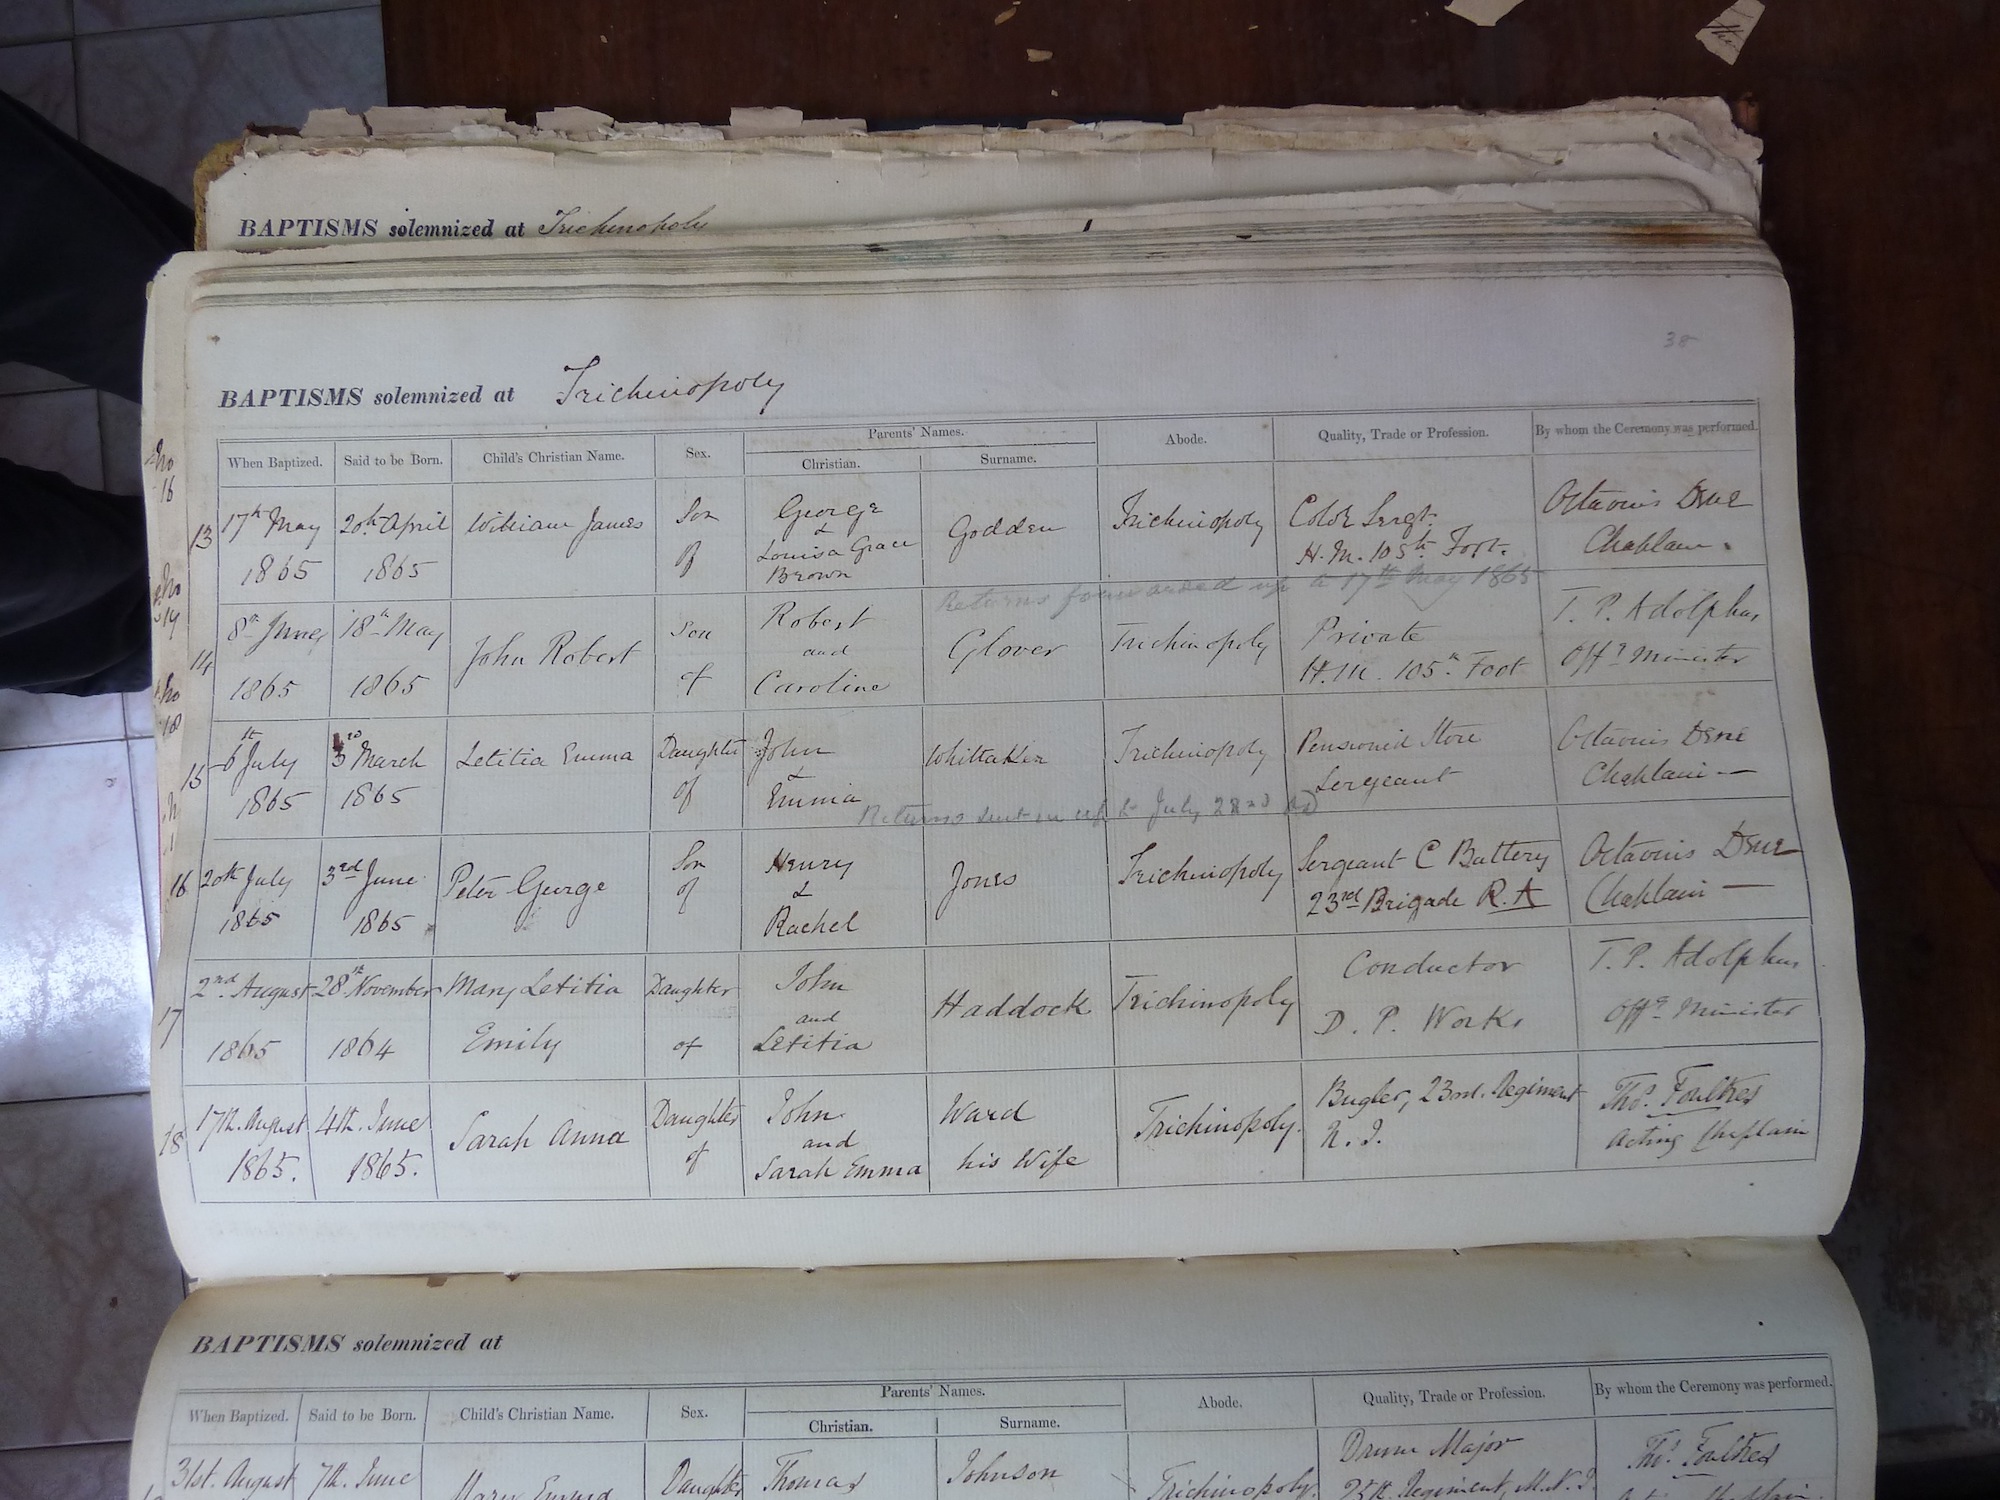 BAPTISMS solemnized at Trichinopoly
38
BAPTISMS solemnized at Trichinopoly
When Baptized. Said to be Born. Child's Christian Name. Sex. Parents' Names. Abode. Quality, Trade or Profession. By whom the Ceremony was performed.
Christian. Surname.
13 17th May 1865 20th April 1865 William James Son of George & Louisa Grace Brown Godden Trichinopoly Color Sergt. H.M. 105th Foot. Chaplain.
Returns forwarded up to 17th May 1865
14 8th June 1865 18th May 1865 John Robert Son of Robert and Caroline Glover Trichinopoly Private H.M. 105th Foot T. P. Adolphus Offg Minister
15 6th July 1865 3rd March 1865 Letitia Emma Daughter of John & Emma Whittaker Trichinopoly Pensioned Store Sergeant Chaplain
Returns sent in up to July 28
16 20th July 1865 3rd June 1865 Peter George Son of Henry & Rachel Jones Trichinopoly Sergeant C Battery 23rd Brigade R.A Chaplain
17 2nd August 1865 28th November 1864 Mary Letitia Emily Daughter of John and Letitia Haddock Trichinopoly Conductor D. P. Works T. P. Adolphus Offg Minister
18 17th. August 1865. 4th. June 1865. Sarah Anna Daughter of John and Sarah Emma Ward his Wife Trichinopoly. Bugler, 23rd. Regiment N. I. Thos. Foulkes Acting Chaplain
BAPTISMS solemnized at
When Baptized. Said to be Born. Child's Christian Name. Sex. Parents' Names. Abode. Quality, Trade or Profession. By whom the Ceremony was performed.
Christian. Surname.
31st. August 7th. June Mary Emma Daughter Thomas Johnson Trichinopoly. Drum Major 25th. Regiment, M.N.I. Thos. Foulkes